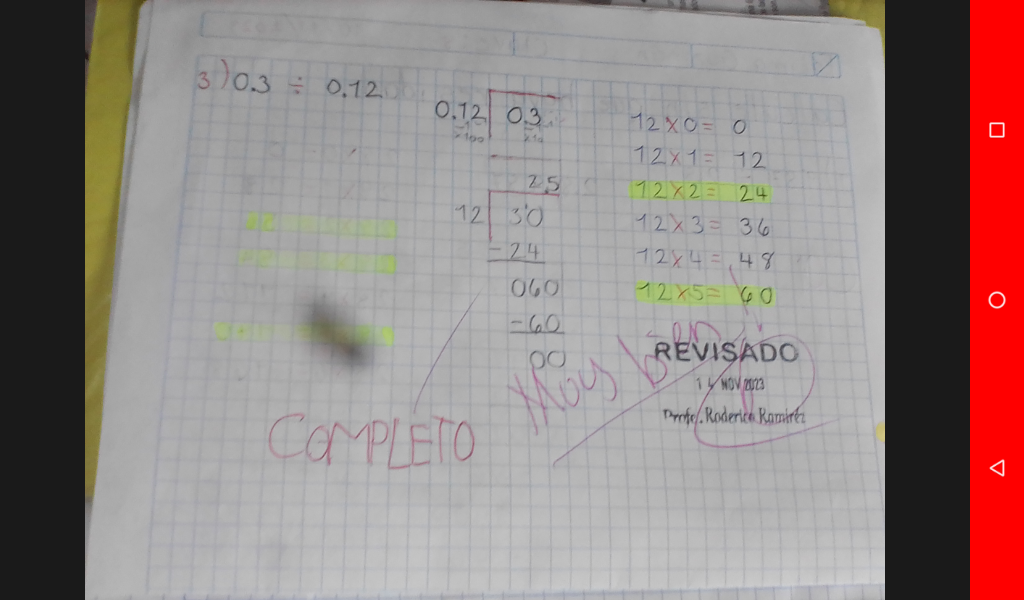 3) 0.3 ÷ 0.12
0.12 0.3
x100 x10
2.5
12 30
-24
060
-60
00
12 x 0 = 0
12 x 1 = 12
12 x 2 = 24
12 x 3 = 36
12 x 4 = 48
12 x 5 = 60
COMPLETO
Muy bien
REVISADO
14 NOV 2023
Ramírez